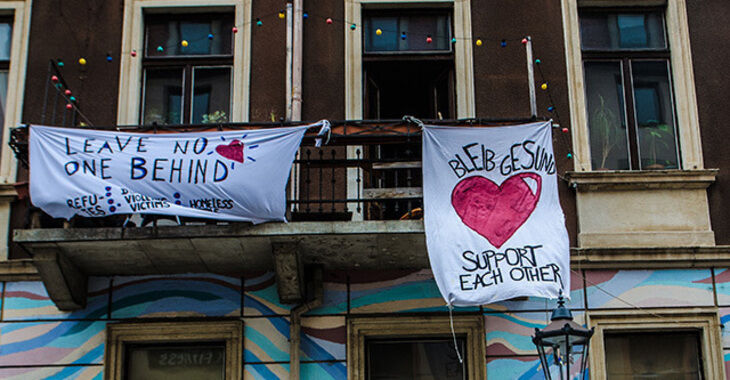 LEAVE NO
ONE BEHIND
REFU-
GEES
VIOLENCE
VICTIMS
HOMELESS
BLEIB GESUND
SUPPORT
EACH OTHER